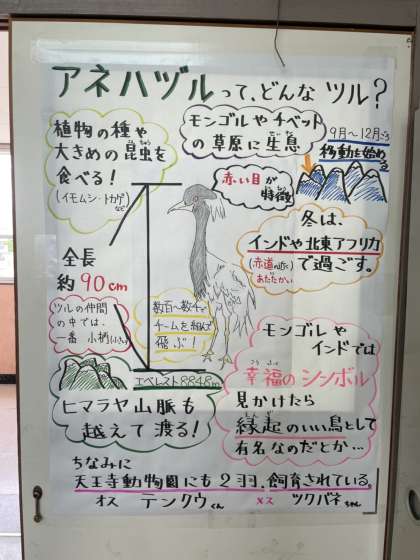 アネハヅルって、どんなツル?
植物の種や
大きめの昆虫を
こんちゅう
食べる!
(イモムシ・トカゲ
など)
モンゴルやチベット
の草原に生息
せいそく
9月〜12月ごろ
移動を始める
赤い目が
特徴
冬は、
インドや北東アフリカ
(赤道の近く
あたたかい)
で過ごす。
全長
約90cm
ツルの仲間
の中では、
一番 小柄(小さい)
数百〜数千で
チームを組んで
飛ぶ!
エベレスト8848m
ヒマラヤ山脈も
越えて渡る!
モンゴルや
インドでは
こうふく
幸福のシンボル
見かけたら
えんぎ
縁起のいい鳥として
有名なのだとか…
ちなみに
天王寺動物園にも2羽、飼育されている。
オス テンクウくん メス ツクバネちゃん